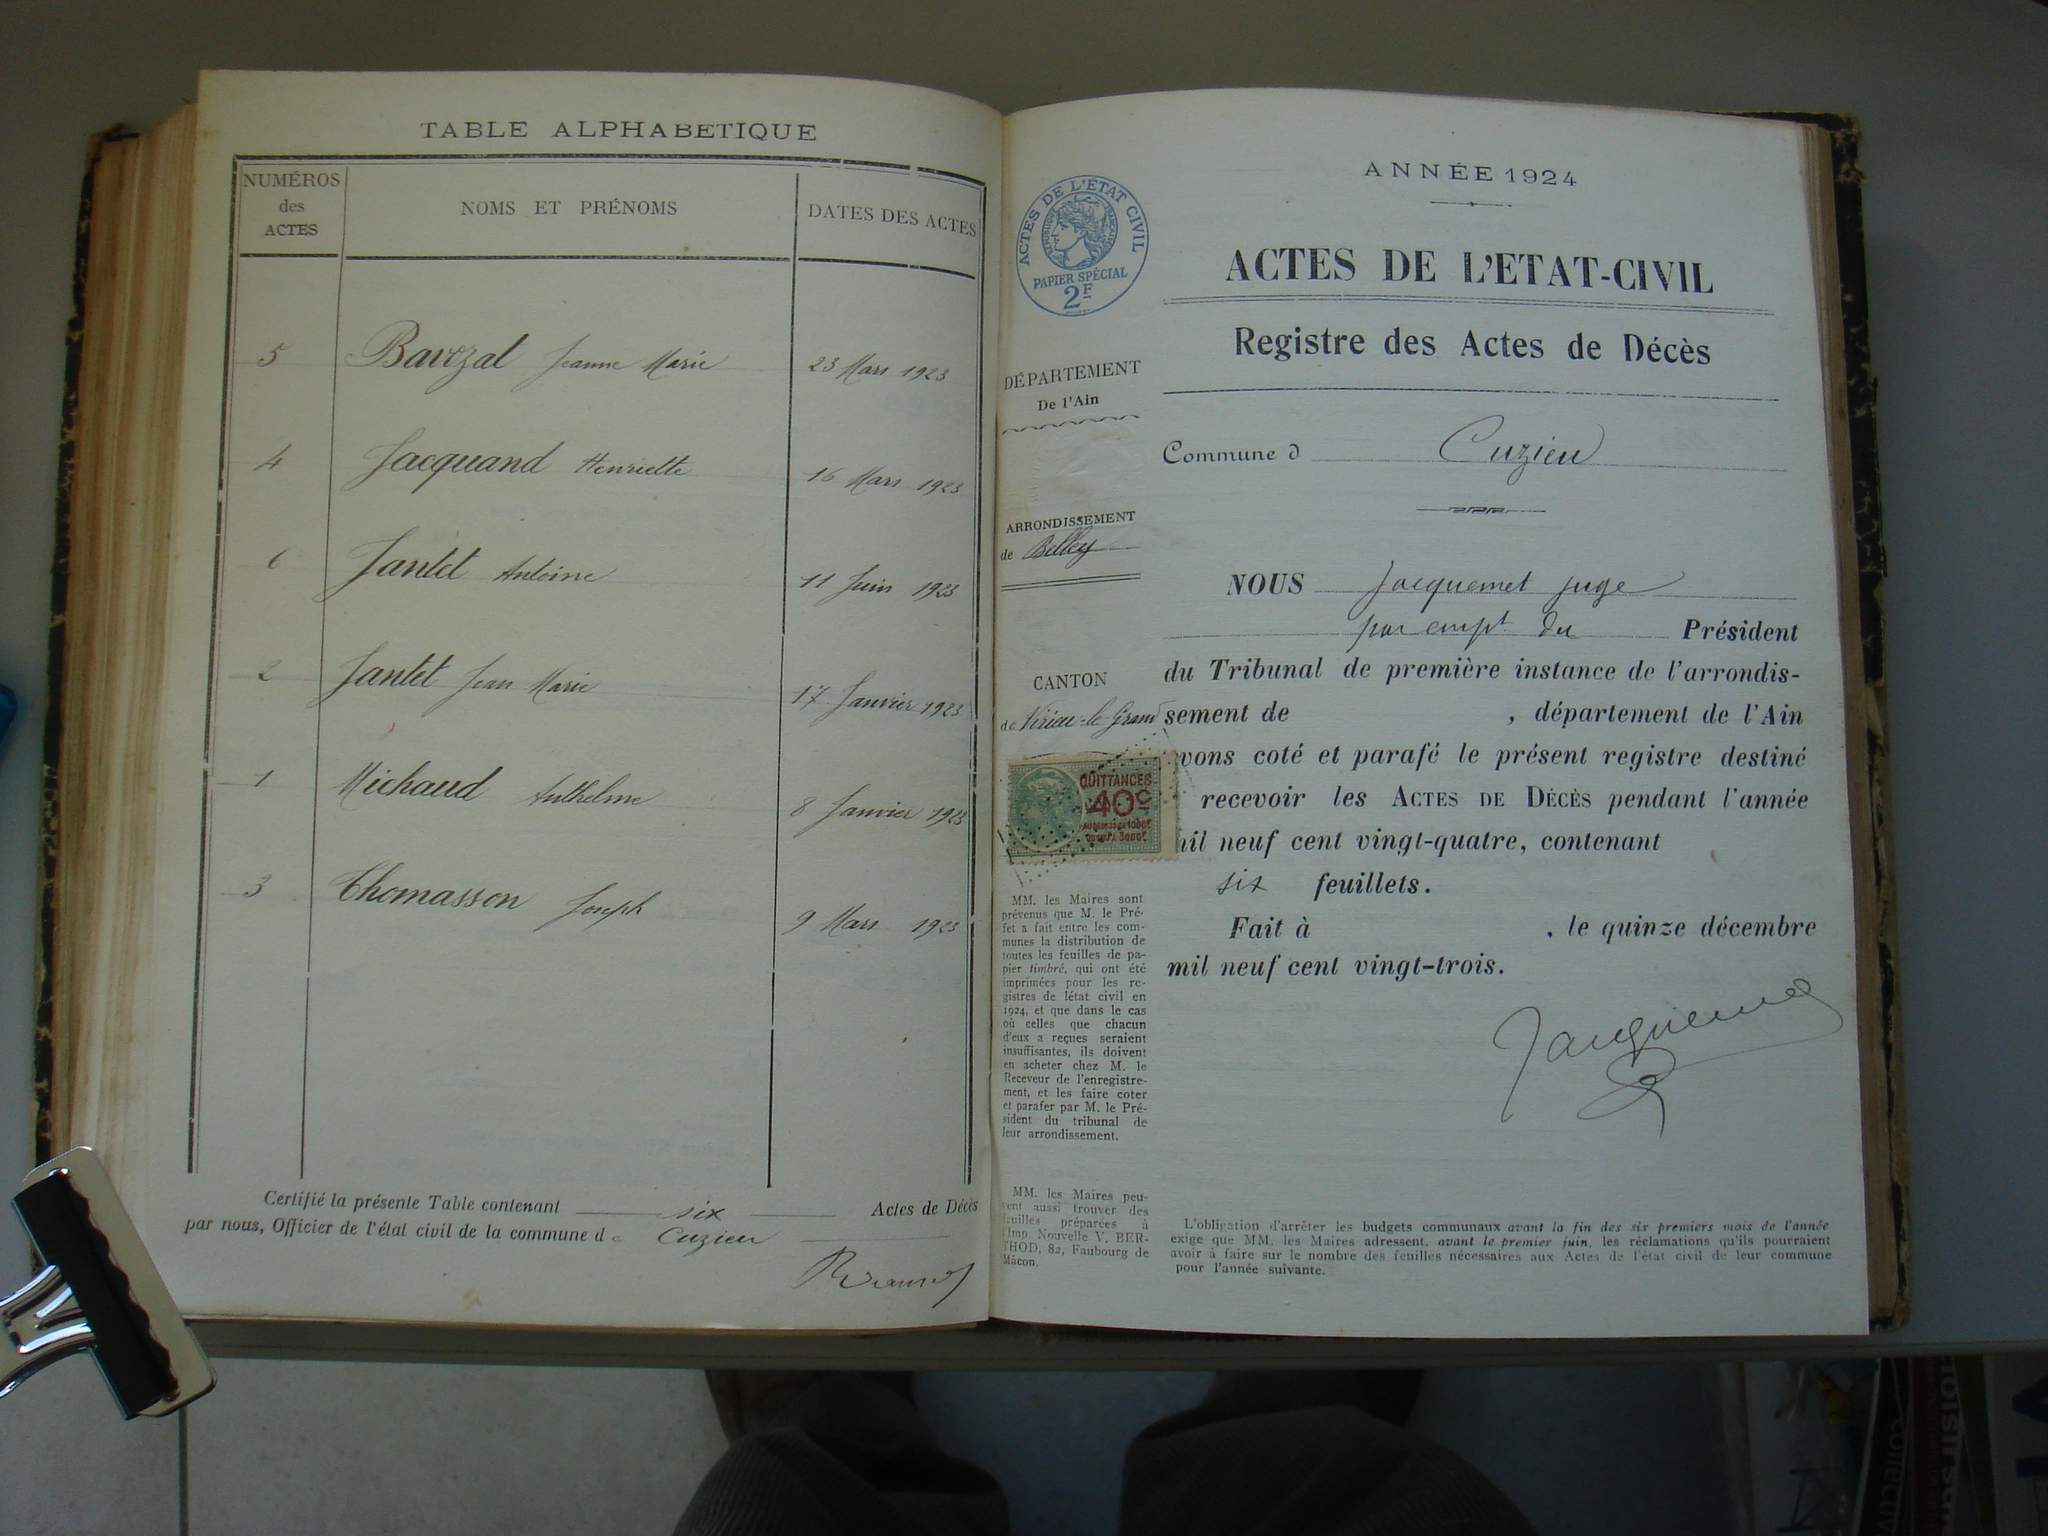 TABLE ALPHABETIQUE
NUMÉROS des ACTES
NOMS ET PRÉNOMS
DATES DES ACTES
5 Bavozat Jeanne Marie 23 Mars 1923
4 Jacquand Henriette 16 Mars 1923
6 Jantet Antoine 11 Juin 1923
2 Jantet Jean Marie 17 Janvier 1923
1 Michaud Anthelme 8 Janvier 1923
3 Thomasson Joseph 9 Mars 1923
Certifié la présente Table contenant six Actes de Décès
par nous, Officier de l'état civil de la commune de Cuzieu
ACTES DE L'ÉTAT CIVIL
RÉPUBLIQUE FRANÇAISE
PAPIER SPÉCIAL
2F
DÉPARTEMENT
De l'Ain
ARRONDISSEMENT
de Belley
CANTON
de Virieu-le-Grand
QUITTANCES
40c
MM. les Maires sont
prévenus que M. le Pré-
fet a fait entre les com-
munes la distribution de
toutes les feuilles de pa-
pier timbré, qui ont été
imprimées pour les re-
gistres de létat civil en
1924, et que dans le cas
où celles que chacun
d'eux a reçues seraient
insuffisantes, ils doivent
en acheter chez M. le
Receveur de l'enregistre-
ment, et les faire coter
et parafer par M. le Pré-
sident du tribunal de
leur arrondissement.
MM. les Maires peu-
vent aussi trouver des
feuilles préparées à
l'Imp. Nouvelle V. BER-
THOD, 82, Faubourg de
Mâcon.
ANNÉE 1924
ACTES DE L'ETAT-CIVIL
Registre des Actes de Décès
Commune d Cuzieu
NOUS Jacquemet juge
par empt du Président
du Tribunal de première instance de l'arrondis-
sement de , département de l'Ain
vons coté et parafé le présent registre destiné
recevoir les ACTES DE DÉCÈS pendant l'année
mil neuf cent vingt-quatre, contenant
six feuillets.
Fait à , le quinze décembre
mil neuf cent vingt-trois.
Jacquemet
L'obligation d'arrêter les budgets communaux avant la fin des six premiers mois de l'année
exige que MM. les Maires adressent, avant le premier juin, les réclamations qu'ils pourraient
avoir à faire sur le nombre des feuilles nécessaires aux Actes de l'état civil de leur commune
pour l'année suivante.